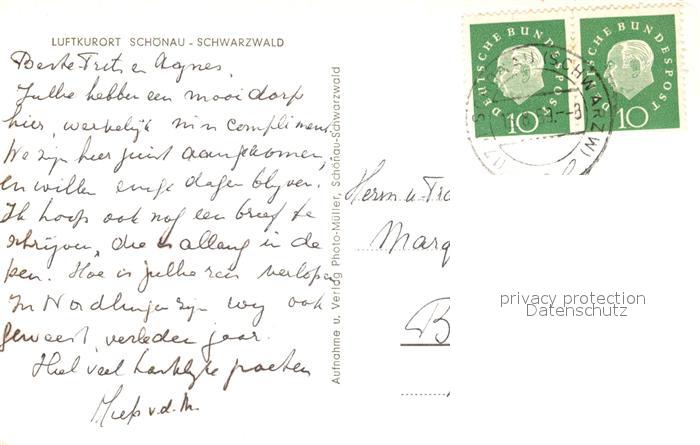 LUFTKURORT SCHÖNAU - SCHWARZWALD
Beste Frits en Agnes,
Jullie hebben een mooi dorp
hier, werkelijk mijn compliment.
We zijn hier juist aangekomen,
en willen enige dagen blijven.
Ik hoop ook nog een brief te
schrijven, die is allang in de
pen. Hoe is jullie reis verlopen
In Nordlingen zijn wy ook
geweest, verleden jaar.
Heel veel hartelijke groeten
Miep v.d. M.
Aufnahme u. Verlag Photo-Müller, Schönau-Schwarzwald
DEUTSCHE BUNDESPOST
10
DEUTSCHE BUNDESPOST
10
SCHWARZW
Herrn u. Fra
Marg
B
privacy protection
Datenschutz